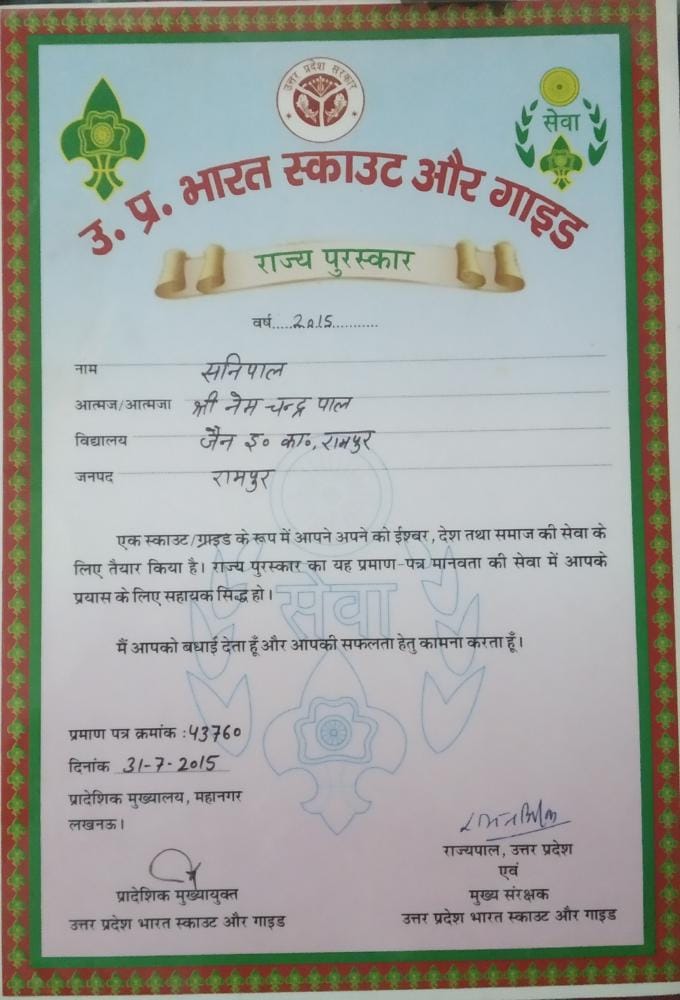 उत्तर प्रदेश सरकार
सेवा
उ. प्र. भारत स्काउट और गाइड
राज्य पुरस्कार
वर्ष.....2015...........
नाम सनिपाल
आत्मज/आत्मजा श्री नेम चन्द्र पाल
विद्यालय जैन इ० का०, रामपुर
जनपद रामपुर
एक स्काउट/गाइड के रूप में आपने अपने को ईश्वर, देश तथा समाज की सेवा के
लिए तैयार किया है। राज्य पुरस्कार का यह प्रमाण-पत्र मानवता की सेवा में आपके
प्रयास के लिए सहायक सिद्ध हो।
सेवा
मैं आपको बधाई देता हूँ और आपकी सफलता हेतु कामना करता हूँ।
प्रमाण पत्र क्रमांक : 43760
दिनांक 31-7-2015
प्रादेशिक मुख्यालय, महानगर
लखनऊ।
राज्यपाल, उत्तर प्रदेश
एवं
मुख्य संरक्षक
उत्तर प्रदेश भारत स्काउट और गाइड
प्रादेशिक मुख्यायुक्त
उत्तर प्रदेश भारत स्काउट और गाइड